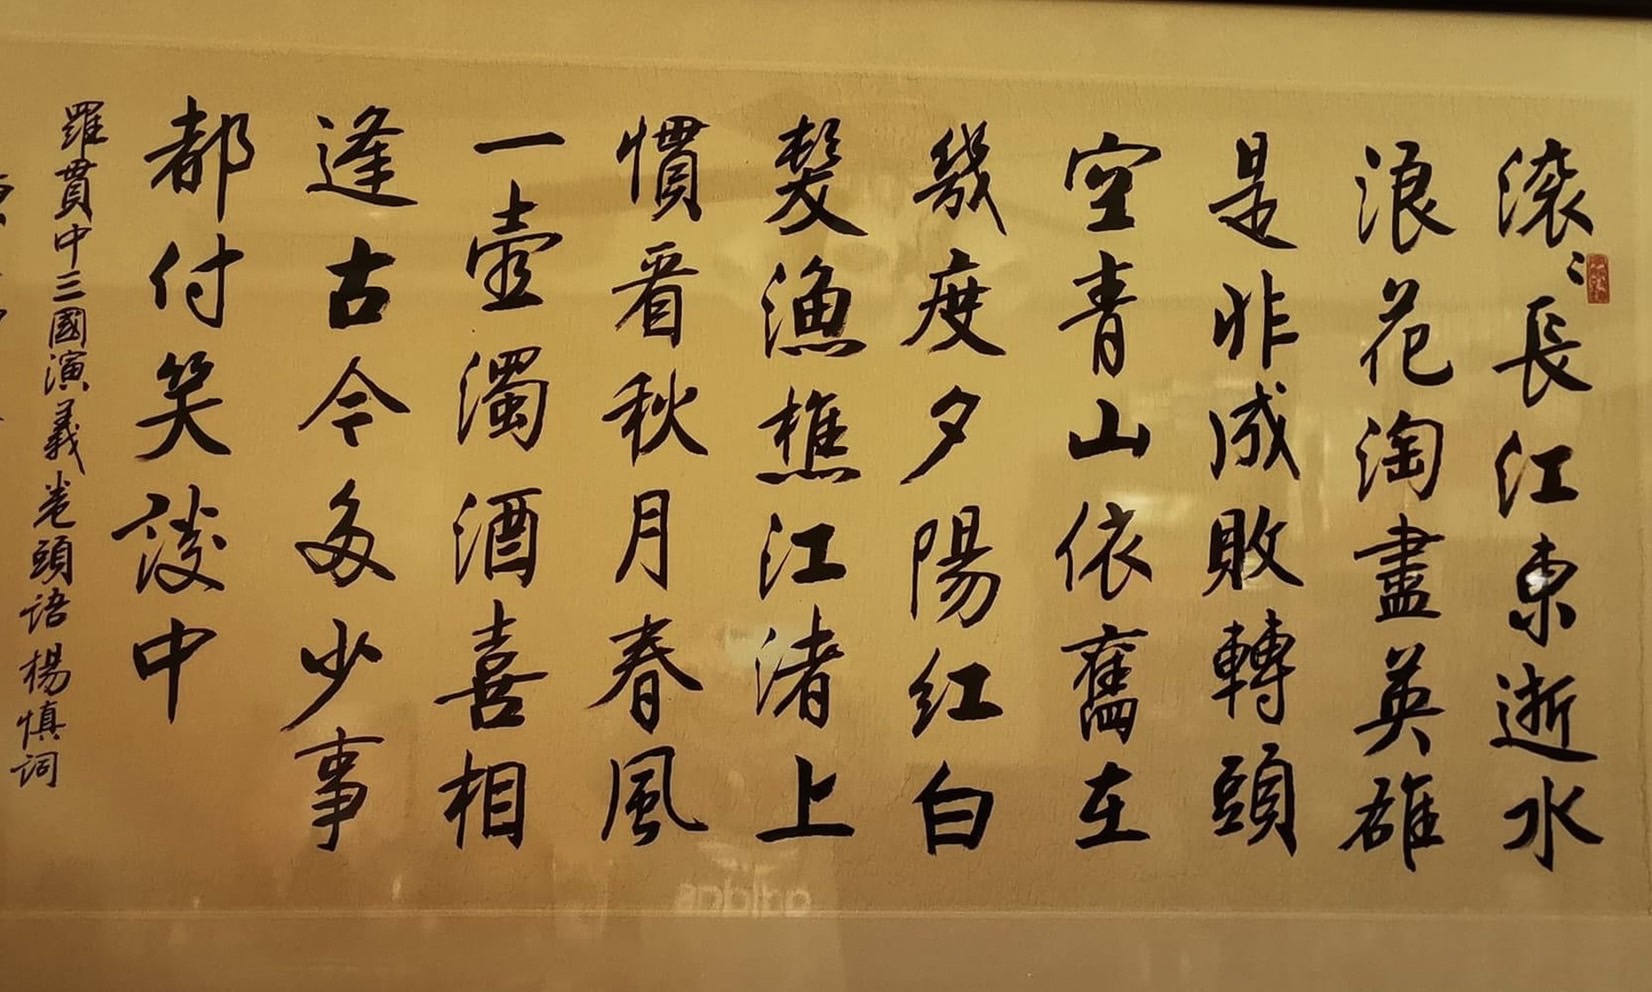 滚〻長江東逝水
浪花淘盡英雄
是非成敗轉頭
空青山依舊在
幾度夕陽紅白
髮漁樵江渚上
慣看秋月春風
一壺濁酒喜相
逢古今多少事
都付笑談中
羅貫中三國演義卷頭語楊慎詞